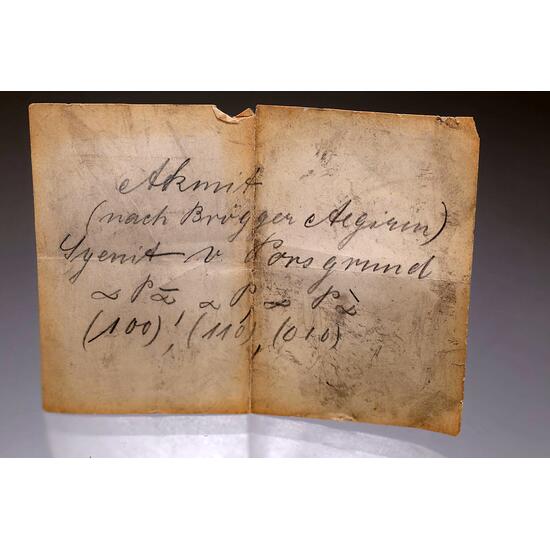 Akmit
(nach Brögger Aegirin)
Syenit v Porsgrund
∞ P ∞̄, ∞ P, ∞ P ∞̀
(100), (110), (010)